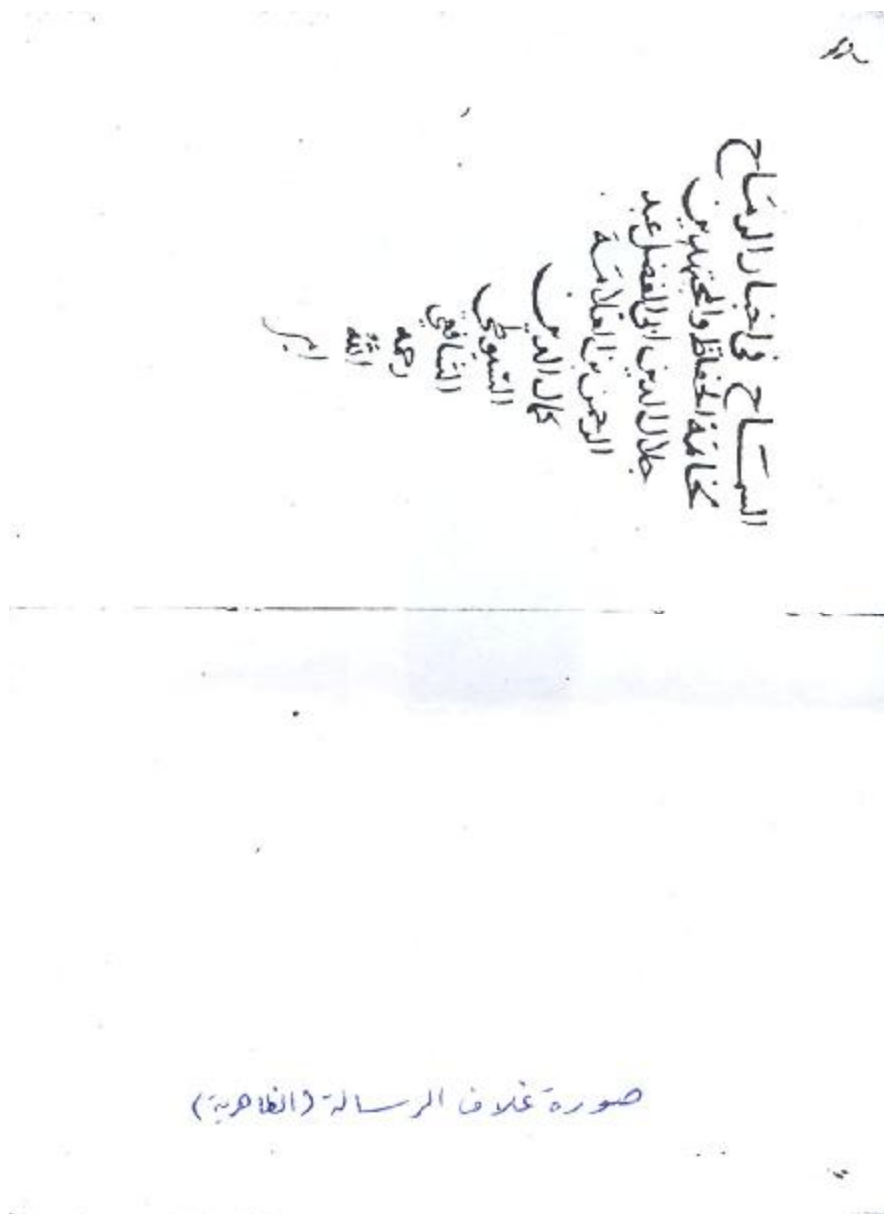 السماح في اخبار الرماح
لخاتمة الحفاظ والمجتهدين
جلال الدين ابى الفضل عبد
الرحمن بن العلامة
كمال الدين
السيوطي
الشافعي
رحمه
الله
صورة غلاف الرسالة (الظاهرية)